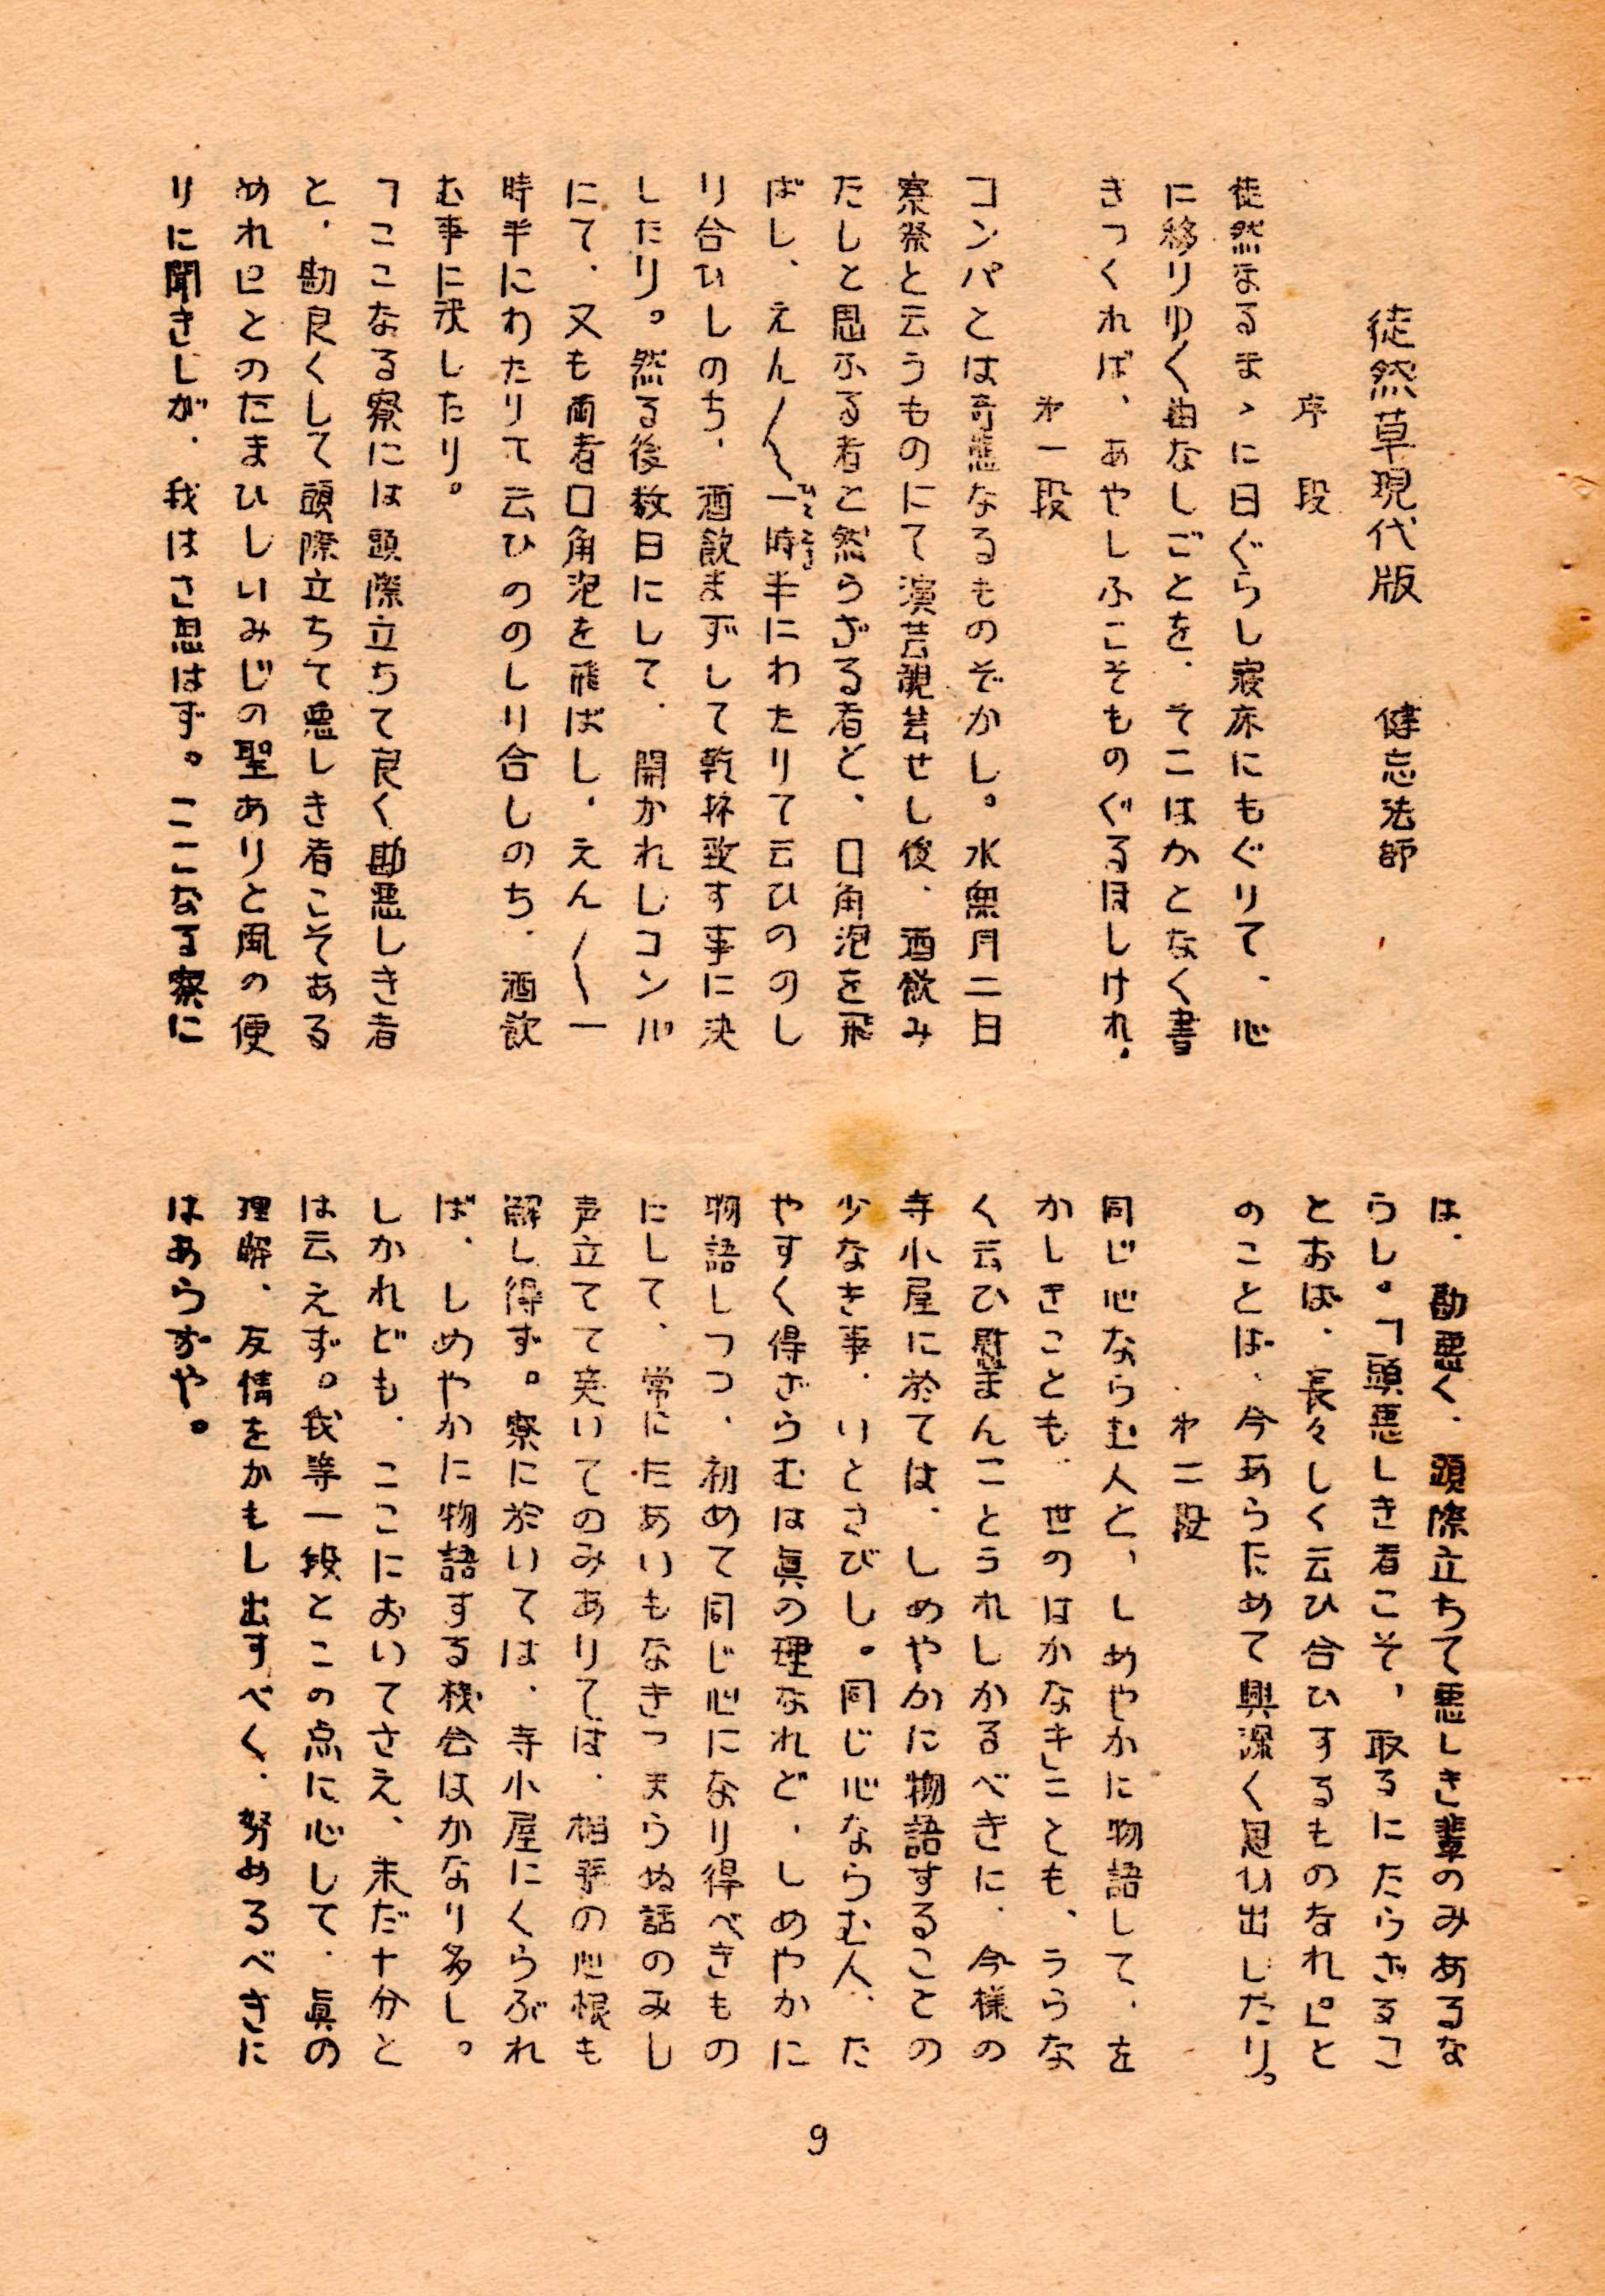 徒然草現代版　健忘法師
序　段
徒然なるまゝに日ぐらし寝床にもぐりて、心
に移りゆく由なしごとを、そこはかとなく書
きつくれば、あやしふこそものぐるほしけれ。
㐧一段
コンパとは奇態なるものぞかし。水無月二日
寮祭と云うものにて演芸観芸せし後、酒飲み
たしと思ふる者と然らざる者と、口角泡を飛
ばし、えん〳〵一時半にわたりて云ひののし
り合ひしのち、酒飲まずして乾杯致す事に決
したり。然る後数日にして、開かれしコンパ
にて、又も両者口角泡を飛ばし、えん〳〵一
時半にわたりて云ひののしり合しのち、酒飲
む事に決したり。
「ここなる寮には頭際立ちて良く勘悪しき者
と、勘良くして頭際立ちて悪しき者こそある
めれ』とのたまひしいみじの聖ありと風の便
りに聞きしが、我はさ思はず。ここなる寮に
は、勘悪く、頭際立ちて悪しき輩のみあるな
らし。「頭悪しき者こそ、取るにたらざるこ
とおば、長々しく云ひ合ひするものなれ』と
のことば、今あらためて興深く思ひ出したり。
㐧二段
同じ心ならむ人と、しめやかに物語して、を
かしきことも、世のはかなき」ことも、うらな
く云ひ慰まんことうれしかるべきに、今様の
寺小屋に於ては、しめやかに物語することの
少なき事、いとさびし。同じ心ならむ人、た
やすく得ざらむは眞の理なれど、しめやかに
物語しつつ、初めて同じ心になり得べきもの
にして、常にたあいもなきつまらぬ話のみし
声立てて笑いてのみありては、相手の心根も
解し得ず。寮に於いては、寺小屋にくらぶれ
ば、しめやかに物語する機会はかなり多し。
しかれども、ここにおいてさえ、未だ十分と
は云えず。我等一段とこの点に心して、眞の
理解、友情をかもし出すべく、努めるべきに
はあらずや。
9